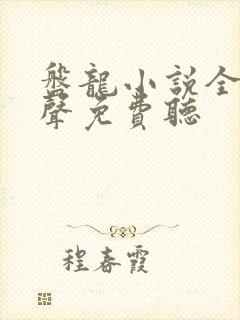 盤龍小説全
聲免費聽
程春霞